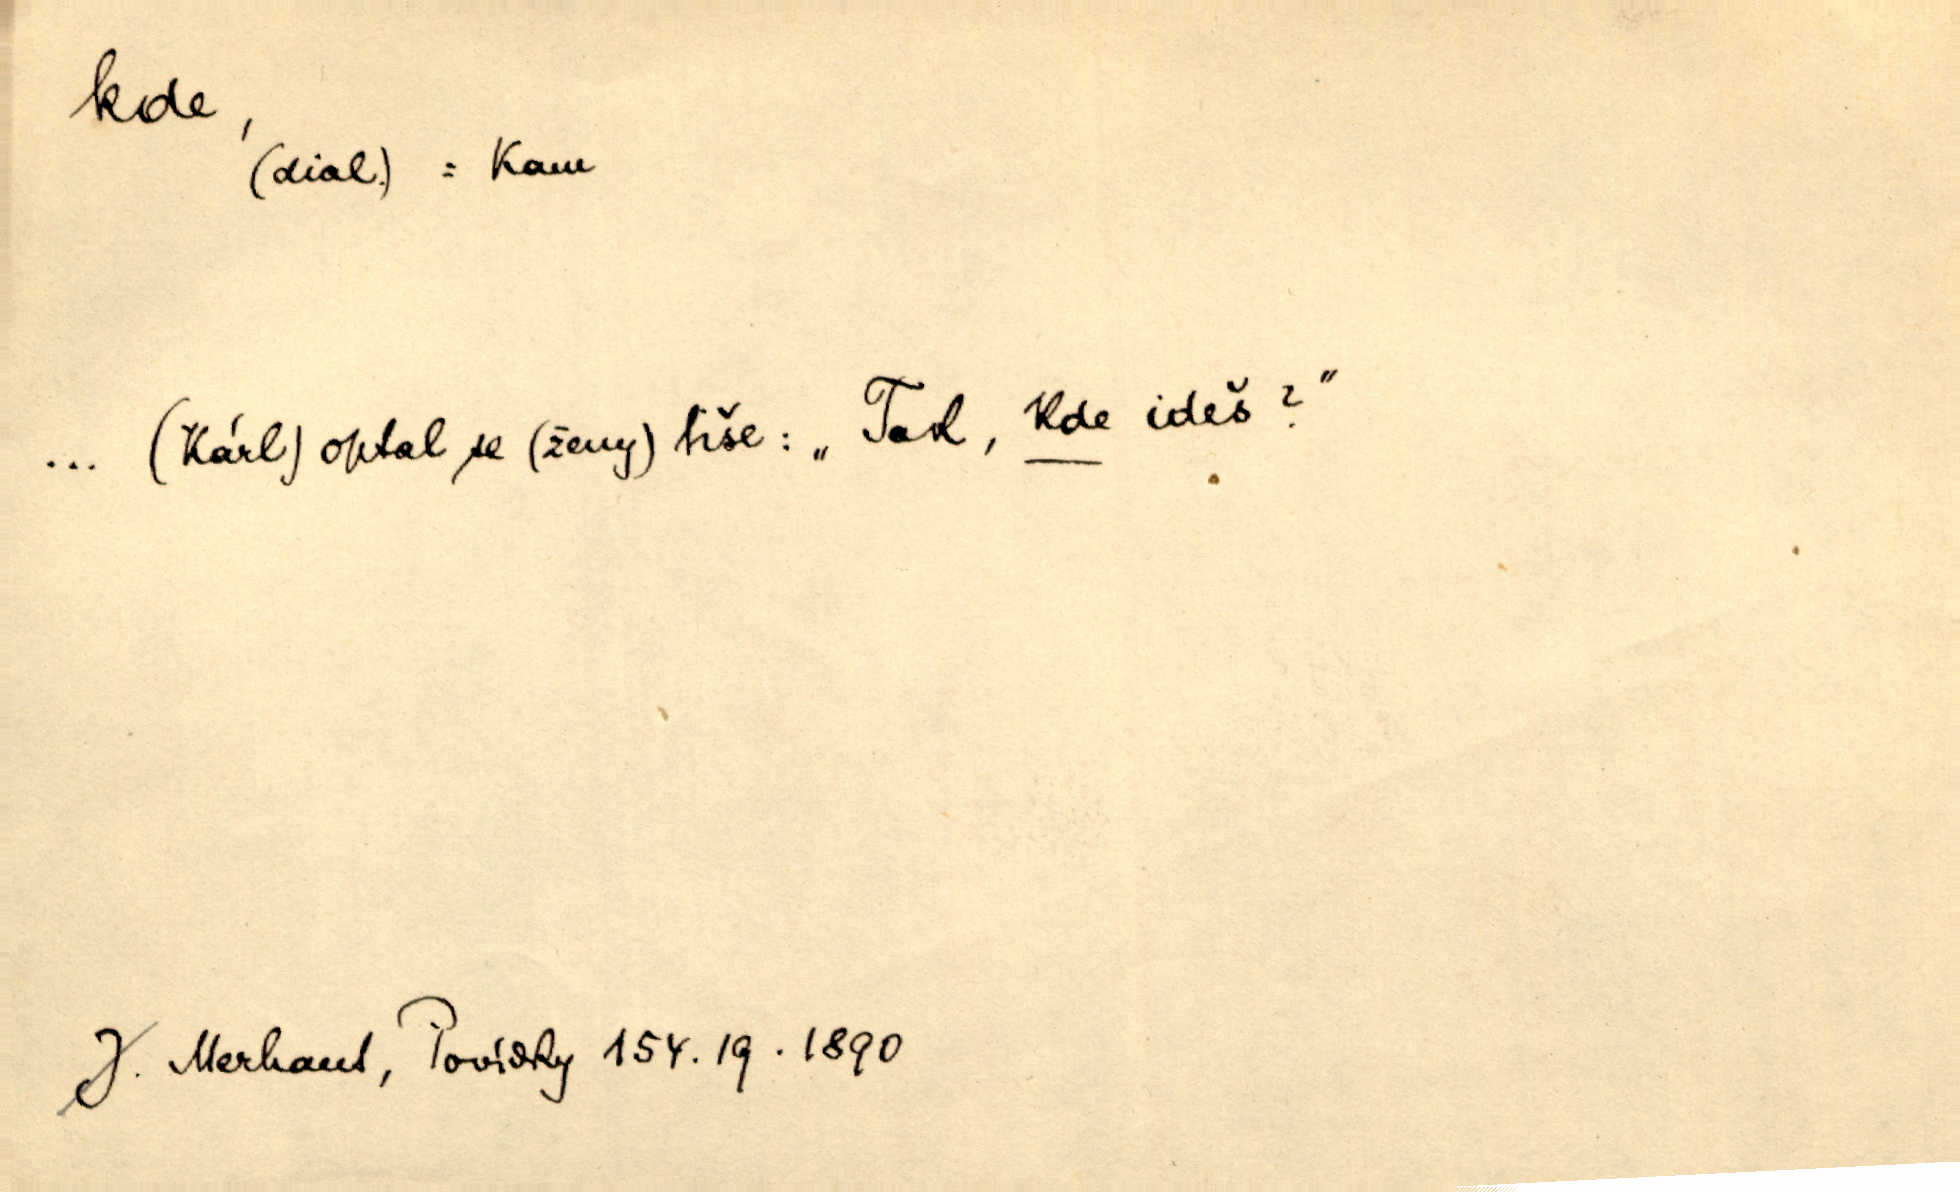 kde,
(dial.) = kam
... (Kárl) optal se (ženy) tiše: „Tak, kde ideš?"
J. Merhaut, Povídky 154. 19. 1890